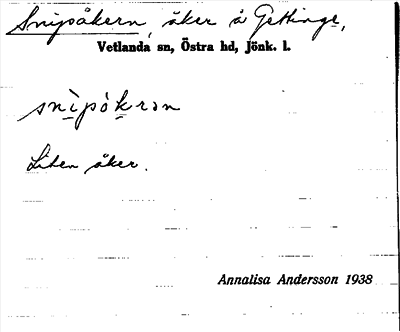 Snipåkern, åker å Gettinge,
Vetlanda sn, Östra hd, Jönk. l.
snìpòkrən
Liten åker.
Annalisa Andersson 1938